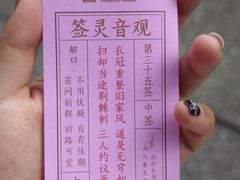 观音灵签
第三十五签 中签
衣冠重整旧家风 道是无穷却
扫却当途荆棘刺 三人约议
解曰：不用忧疑 自有佳期
若问前程 前路可宜